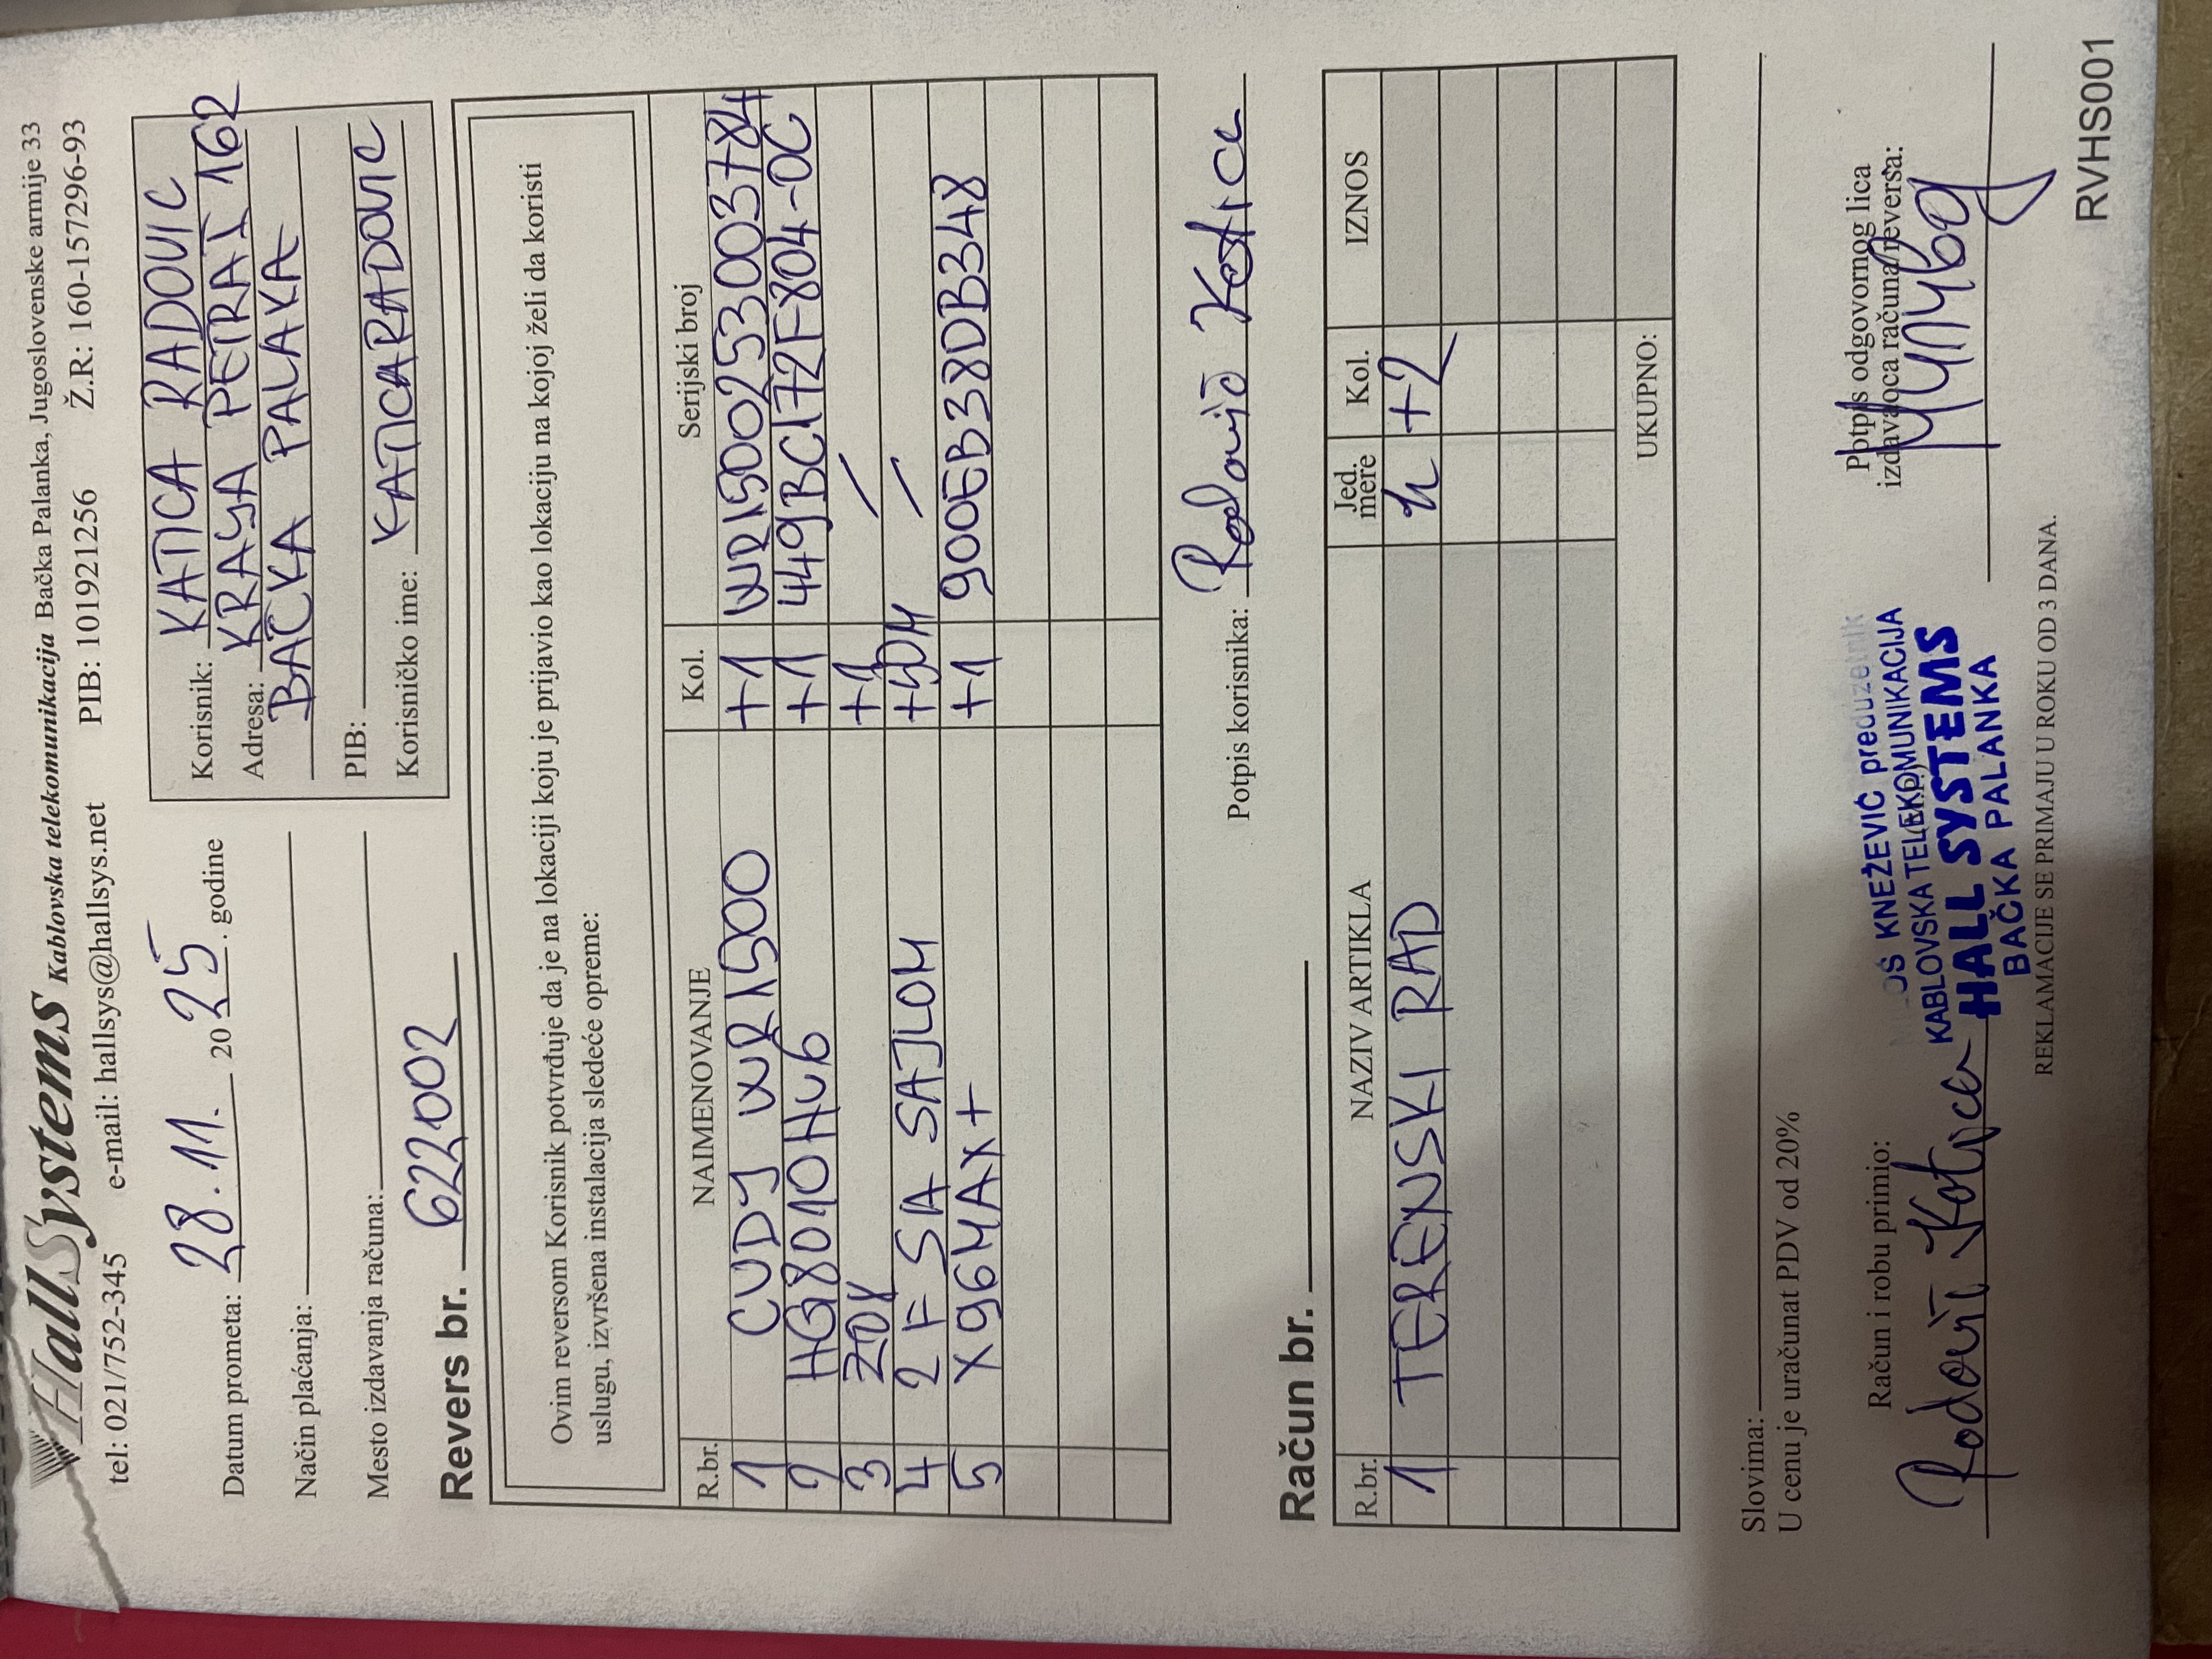 HallSystems Kablovska telekomunikacija Bačka Palanka, Jugoslovenske armije 33
tel: 021/752-345 e-mail: hallsys@hallsys.net PIB: 101921256 Ž.R: 160-157296-93
Datum prometa: 28.11. 2025. godine
Način plaćanja:
Mesto izdavanja računa:
Korisnik: KATICA RADOVIC
Adresa: KRALJA PETRA I 162
BAČKA PALAKA
PIB:
Korisničko ime: KATICARADOVIC
Revers br. 622002
Ovim reversom Korisnik potvrđuje da je na lokaciji koju je prijavio kao lokaciju na kojoj želi da koristi
uslugu, izvršena instalacija sledeće opreme:
R.br. NAIMENOVANJE Kol. Serijski broj
1 CUDY WR1500 +1 WR1500253003784
2 HG8010HV6 +1 449BC172F804-0C
3 ZOK +1 /
4 2F SA SAJLOM +50M /
5 X96MAX+ +1 900EB38DB348
Potpis korisnika: Radović Katica
Račun br.
R.br. NAZIV ARTIKLA Jed. mere Kol. IZNOS
1 TERENSKI RAD h +2
UKUPNO:
Slovima:
U cenu je uračunat PDV od 20%
Račun i robu primio:
Radović Katica
OŠ KNEŽEVIĆ preduzetnik
KABLOVSKA TELEKOMUNIKACIJA
HALL SYSTEMS
BAČKA PALANKA
Potpis odgovornog lica
izdavaoca računa/reversa:
REKLAMACIJE SE PRIMAJU U ROKU OD 3 DANA.
RVHS001